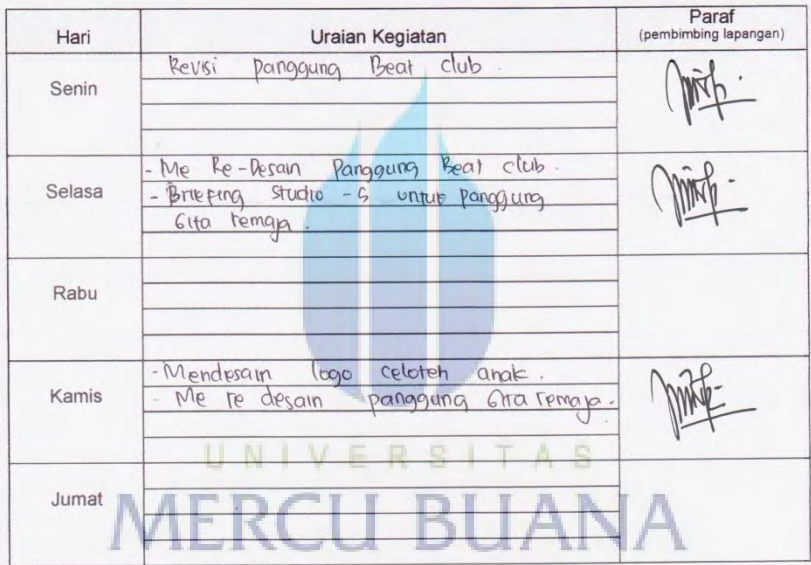 Hari Uraian Kegiatan Paraf
(pembimbing lapangan)
Senin
Revisi panggung Beat club.
Selasa
- Me Re-Desain Panggung Beat club.
- Briefing Studio -5 untuk panggung
Gita remaja.
Rabu
Kamis
- Mendesain logo celoteh anak.
- Me re desain panggung Gita remaja.
UNIVERSITAS
Jumat
MERCU BUANA